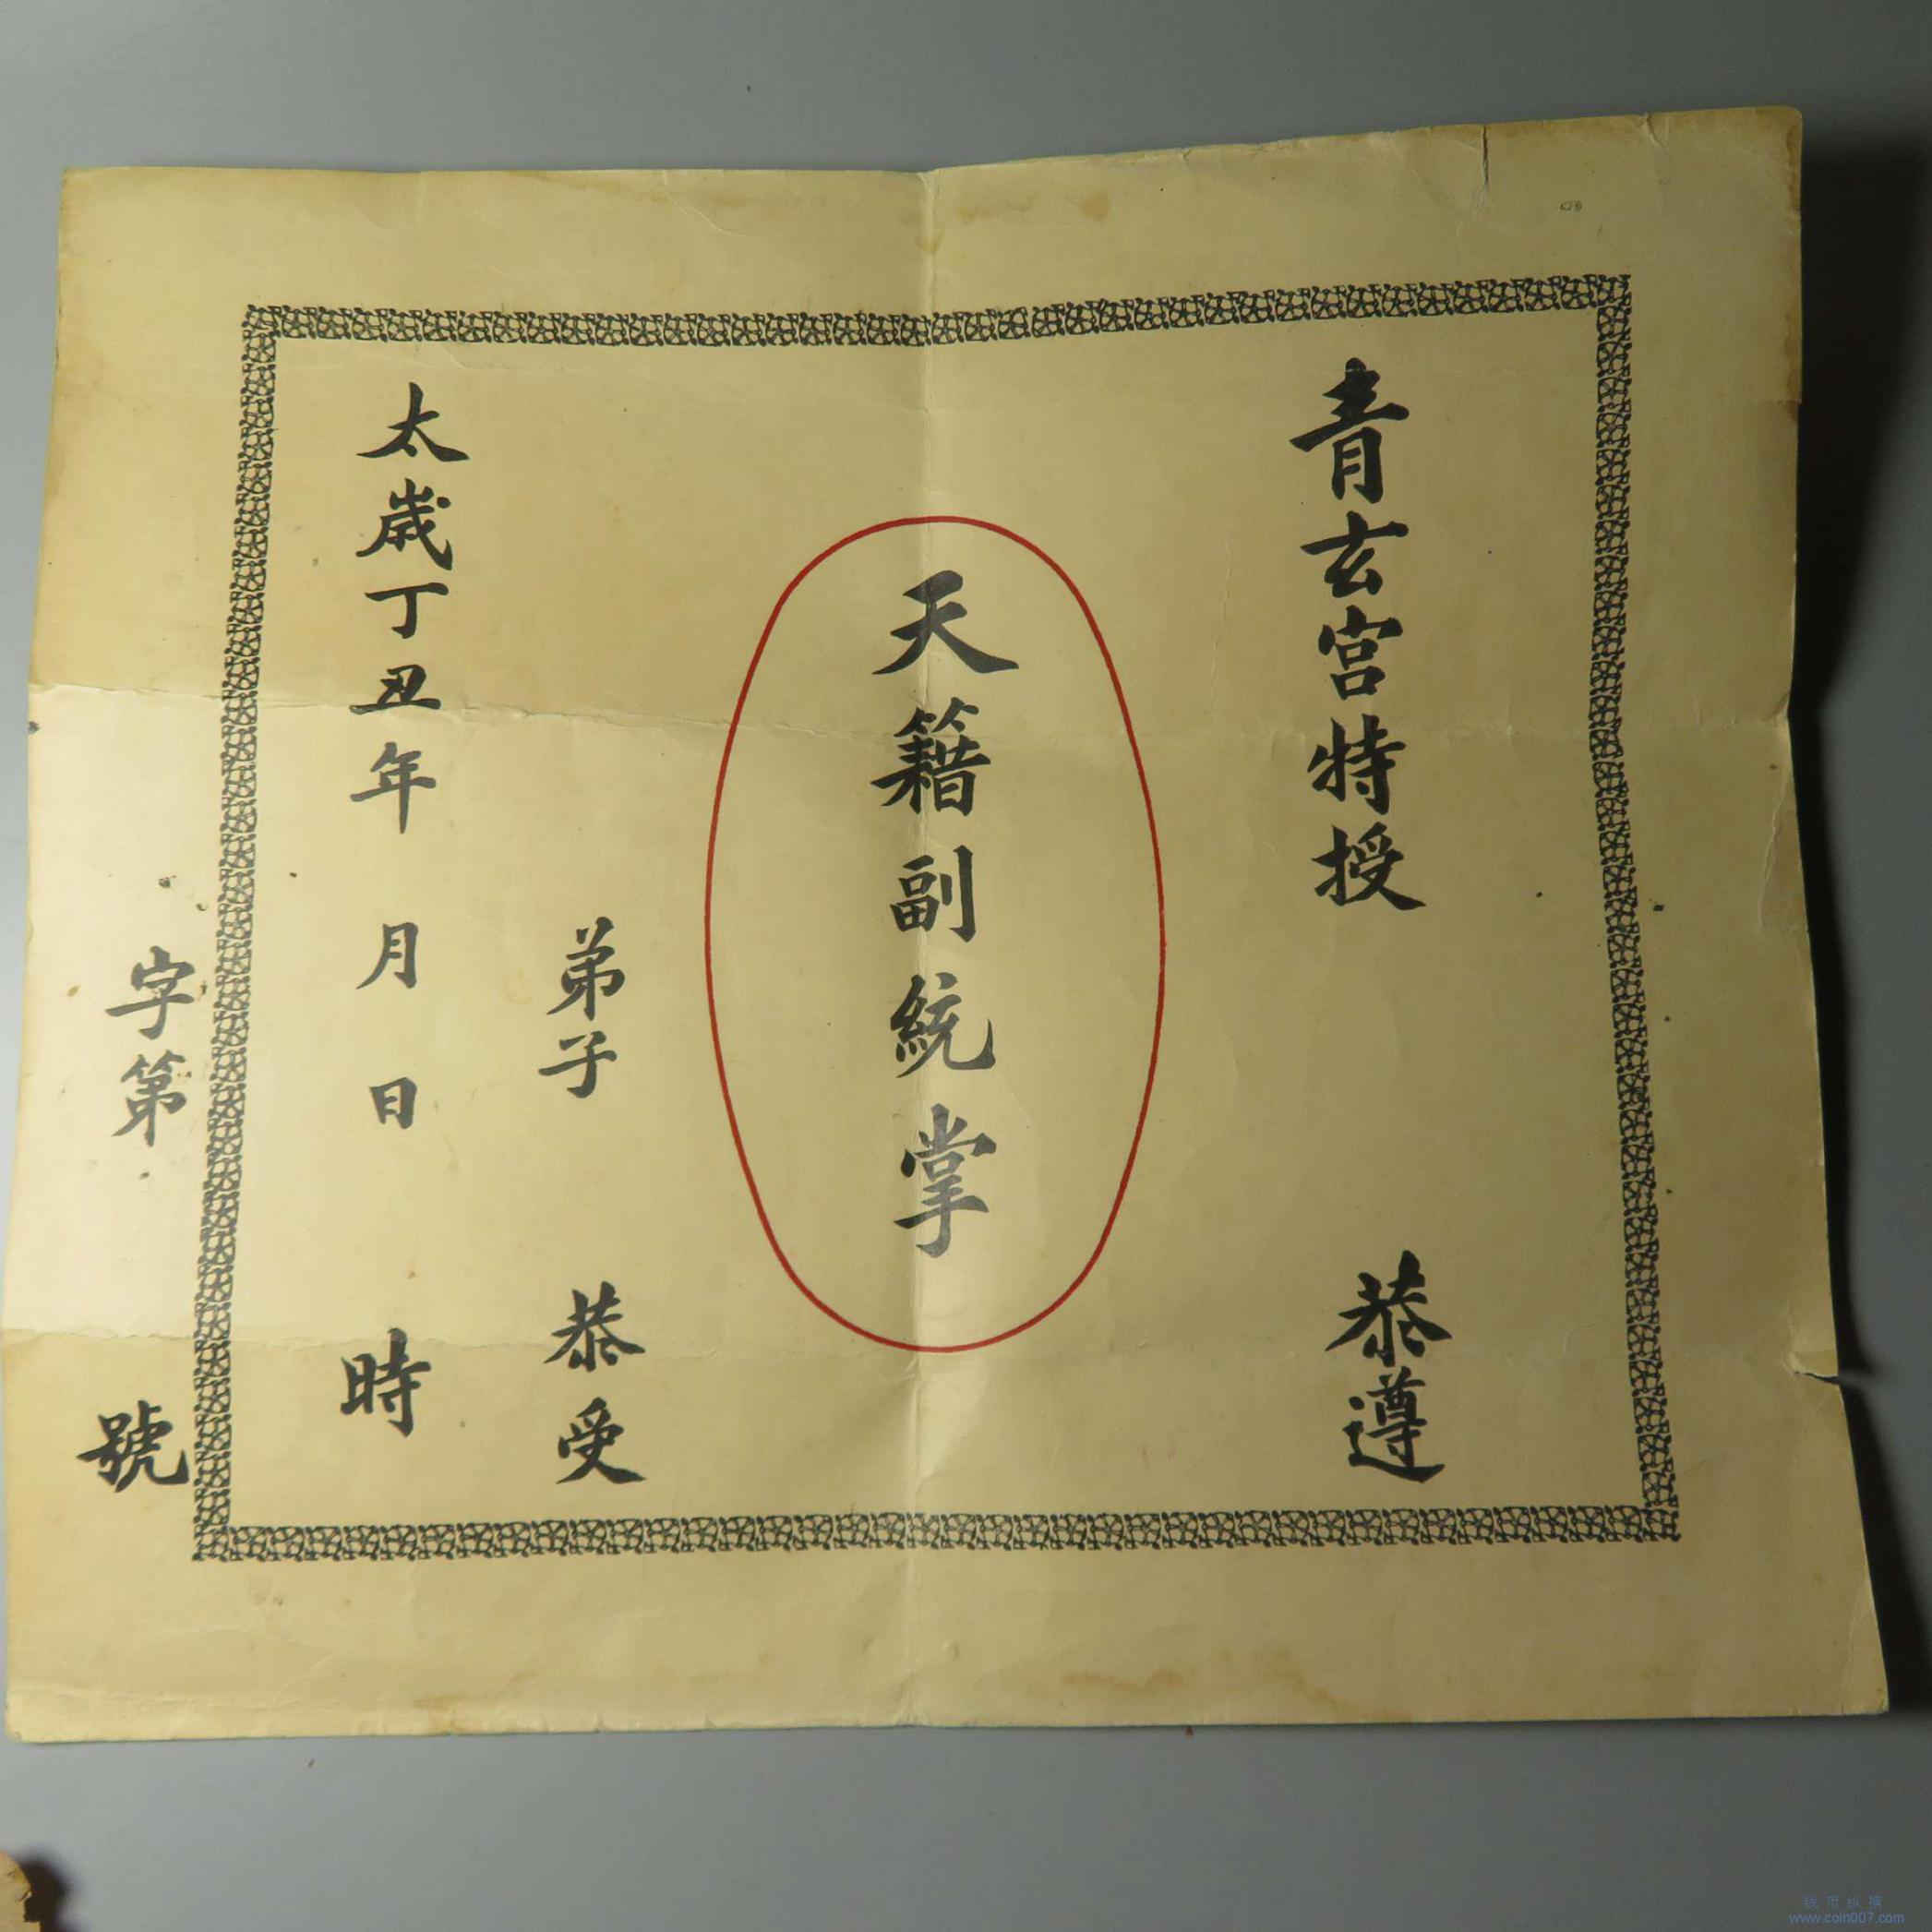 青玄宮特授 恭遵
天籍副統掌
弟子 恭受
太歲丁丑年 月 日 時
字第 號
钱币纵横
www.coin007.com